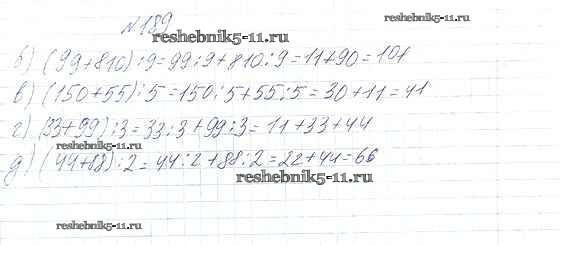 №189
reshebnik5-11.ru
reshebnik5-11.ru
б) (99+810):9=99:9+810:9=11+90=101
в) (150+55):5=150:5+55:5=30+11=41
г) (33+99):3=33:3+99:3=11+33+44
reshebnik5-11.ru
д) (44+88):2=44:2+88:2=22+44=66
reshebnik5-11.ru
reshebnik5-11.ru